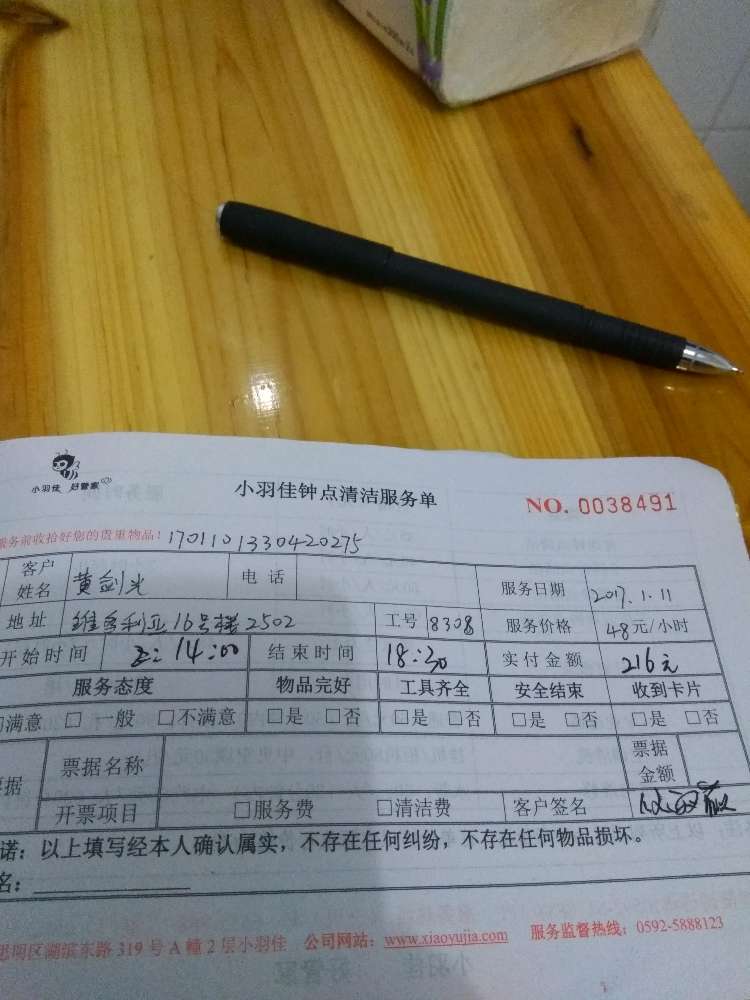 小羽佳 好管家
小羽佳钟点清洁服务单
NO. 0038491
服务前收拾好您的贵重物品！1701101330420275
客户姓名 黄剑光 电话 服务日期 2017.1.11
地址 维多利亚16号楼2502 工号 8308 服务价格 48元/小时
开始时间 14:00 结束时间 18:30 实付金额 216元
服务态度 物品完好 工具齐全 安全结束 收到卡片
□满意 □一般 □不满意 □是 □否 □是 □否 □是 □否 □是 □否
据 票据名称 票据金额
开票项目 □服务费 □清洁费 客户签名
诺：以上填写经本人确认属实，不存在任何纠纷，不存在任何物品损坏。
名：
思明区湖滨东路319号A幢2层小羽佳 公司网站：www.xiaoyujia.com 服务监督热线：0592-5888123